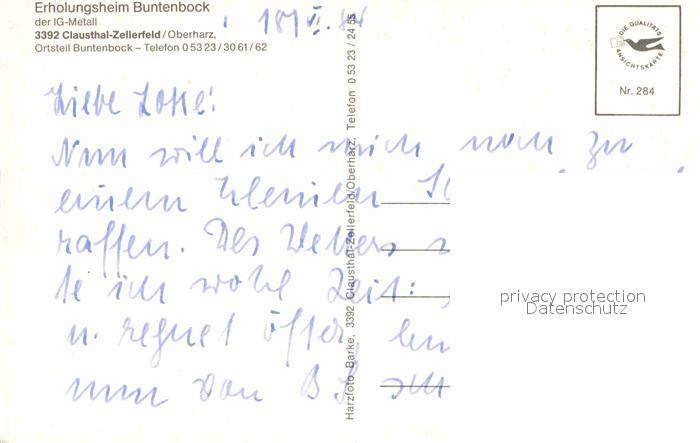 Erholungsheim Buntenbock
der IG-Metall
3392 Clausthal-Zellerfeld/Oberharz,
Ortsteil Buntenbock – Telefon 0 53 23/30 61/62
DIE QUALITÄTS
ANSICHTSKARTE
Nr. 284
Liebe Lotte!
Nun will ich mich noch zu
einem kleinen
raffen. Des Wetters
te ich wohl Zeit:
u. regnet öfter,
nun von
Harzfoto Barke, 3392 Clausthal-Zellerfeld/Oberharz, Telefon 0 53 23 / 24 55
privacy protection
Datenschutz